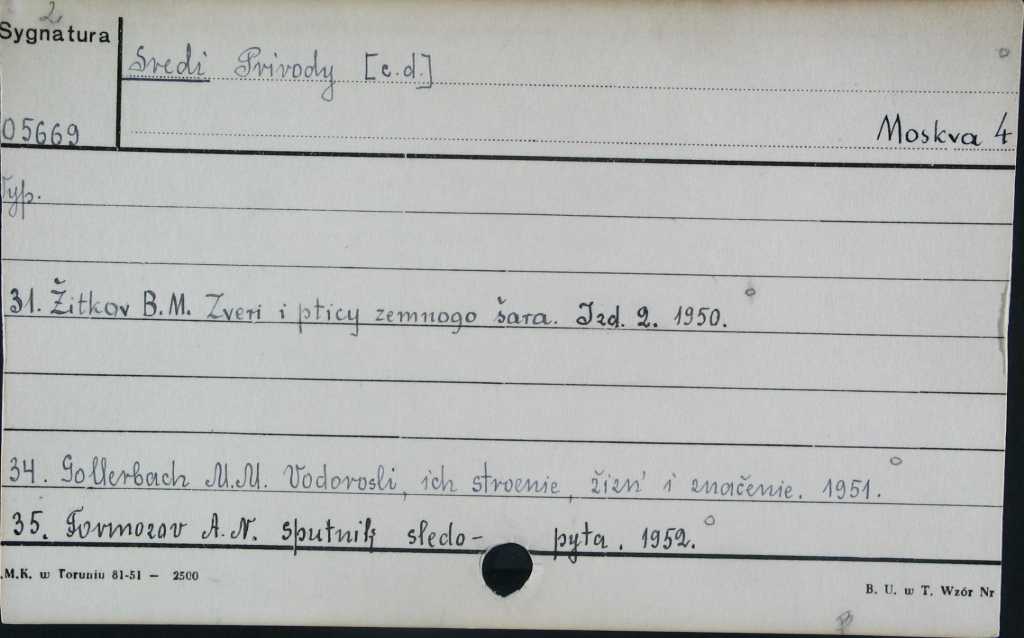 2
Sygnatura
Sredi Prirody [c.d.]
05669
Moskva 4
Typ.
31. Žitkov B.M. Zveri i pticy zemnogo šara. Izd. 2. 1950.
34. Gollerbach M.M. Vodorosli, ich stroenie, žizn' i značenie. 1951.
35. Formozov A.N. sputnik sledo- pyta. 1952.
.M.K. w Toruniu 81-51 — 2500
B. U. w T. Wzór Nr